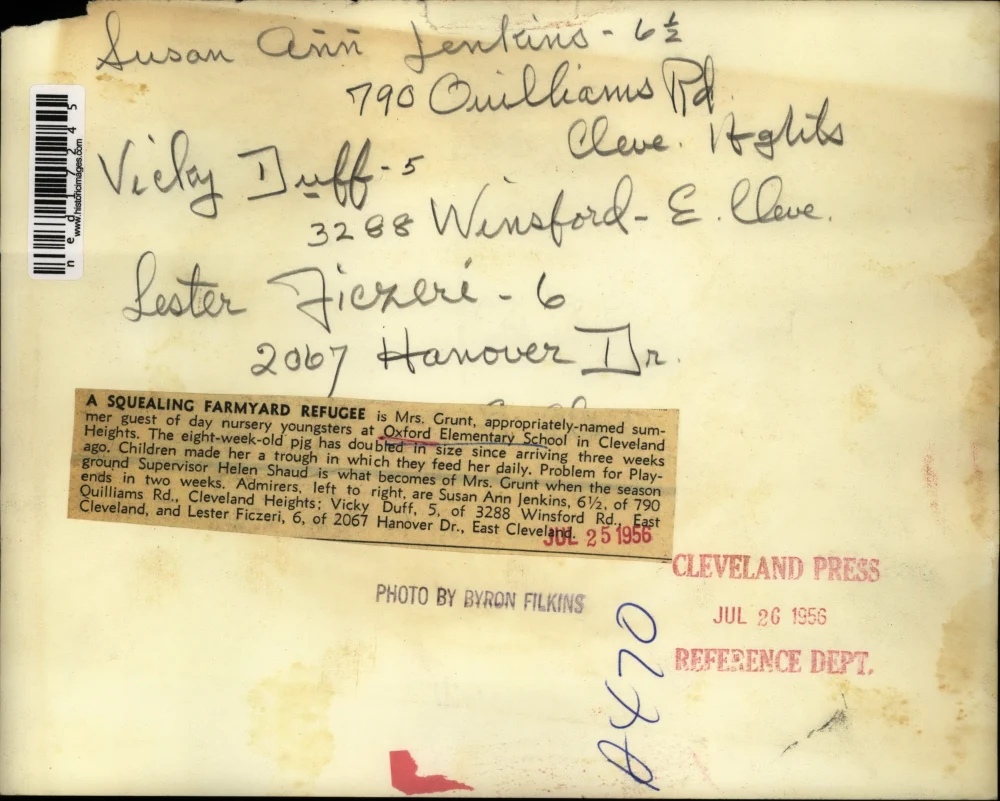 Susan Ann Jenkins - 6½
790 Quilliams Rd.
Cleve. Hghts
Vicky Duff - 5
3288 Winsford - E. Cleve.
Lester Ficzeri - 6
2067 Hanover Dr.
A SQUEALING FARMYARD REFUGEE is Mrs. Grunt, appropriately-named sum-
mer guest of day nursery youngsters at Oxford Elementary School in Cleveland
Heights. The eight-week-old pig has doubled in size since arriving three weeks
ago. Children made her a trough in which they feed her daily. Problem for Play-
ground Supervisor Helen Shaud is what becomes of Mrs. Grunt when the season
ends in two weeks. Admirers, left to right, are Susan Ann Jenkins, 6½, of 790
Quilliams Rd., Cleveland Heights; Vicky Duff, 5, of 3288 Winsford Rd., East
Cleveland, and Lester Ficzeri, 6, of 2067 Hanover Dr., East Cleveland.
JUL 25 1956
CLEVELAND PRESS
JUL 26 1956
REFERENCE DEPT.
PHOTO BY BYRON FILKINS
A470
www.historicimages.com
ned17245